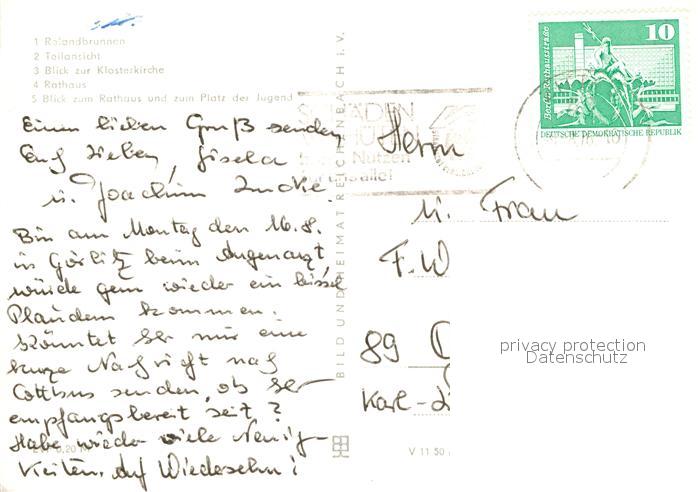 1 Rolandbrunnen
2 Teilansicht
3 Blick zur Klosterkirche
4 Rathaus
5 Blick zum Rathaus und zum Platz der Jugend
Einen lieben Gruß senden
Euch Lieben, Gisela
u. Joachim
Bin am Montag den 16.8.
in Görlitz beim Augenarzt,
würde gern wieder ein bissel
Plaudern kommen.
Könntet Ihr mir eine
kurze Nachricht nach
Cottbus senden, ob Ihr
empfangsbereit seit?
Habe wieder viele Neuig-
keiten. Auf Wiedersehn!
BILD UND HEIMAT REICHENBACH i. V.
SCHÄDEN
Nutzen
für uns alle!
10
Berlin, Rathausstraße
DEUTSCHE DEMOKRATISCHE REPUBLIK
Herrn
u. Frau
F. W
89
Karl-Li
privacy protection
Datenschutz
0,20 M
V 11 50